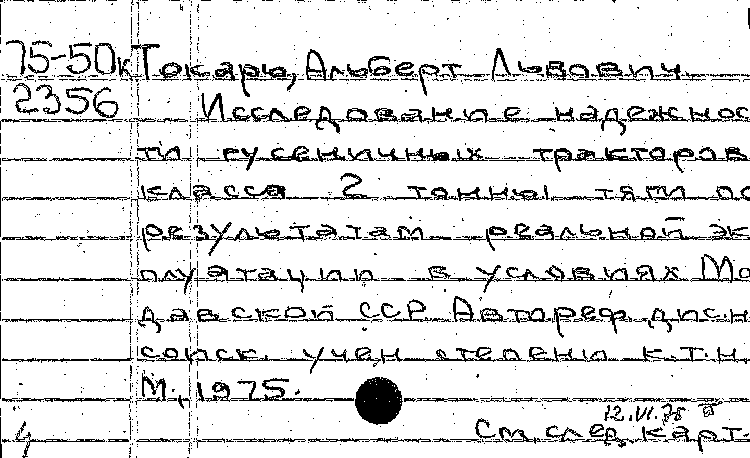 75-50к Токарю, Альберт Львович.
2356 Исследование надежнос
ти гусеничных тракторов
класса 2 тонны тяги по
результатам реальной эк
плуатации в условиях Мо
давской ССР. Автореф. дис. н
соиск. учен. степени к.т.н.
М., 1975.
12.VI.75
4 См. след. карт.